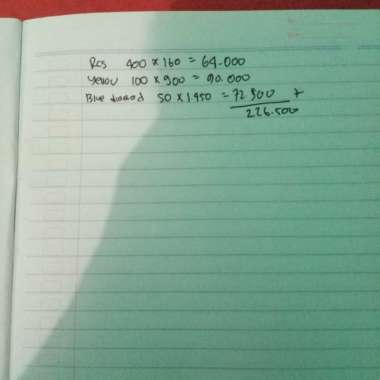 Ros 400 × 160 = 64.000
Yellow 100 × 900 = 90.000
Blue diamond 50 × 1.450 = 72 500 +
226.500